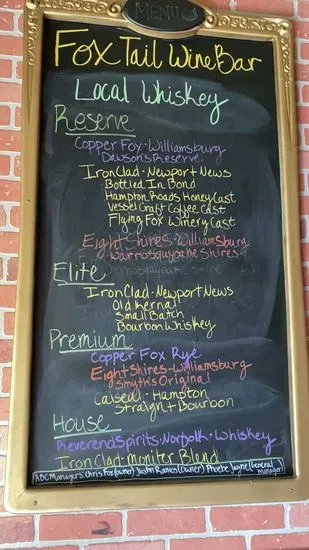 MENU
Fox Tail Wine Bar
Local Whiskey
Reserve
Copper Foy · Williamsburg
Dawson's Reserve
Iron Clad · Newport News
Bottled In Bond
Hampton Roads Honey Cast
Vessel Craft Coffee Cast
Flying Fox Winery Cast
Eight Shires · Williamsburg
Warrosquyoake Shires
Elite
Iron Clad · Newport News
Old Kernal
Small Batch
Bourbon Whiskey
Premium
Copper Fox Rye
Eight Shires - Williamsburg
Smyth's Original
Caiseal · Hampton
Straight Bourbon
House
Reverend Spirits · Norfolk · Whiskey
Iron Clad · Moniter Blend
ABC Managers: Chris Fox (owner) Justin Ramos (Owner) Phoebe Jayne (General manager)